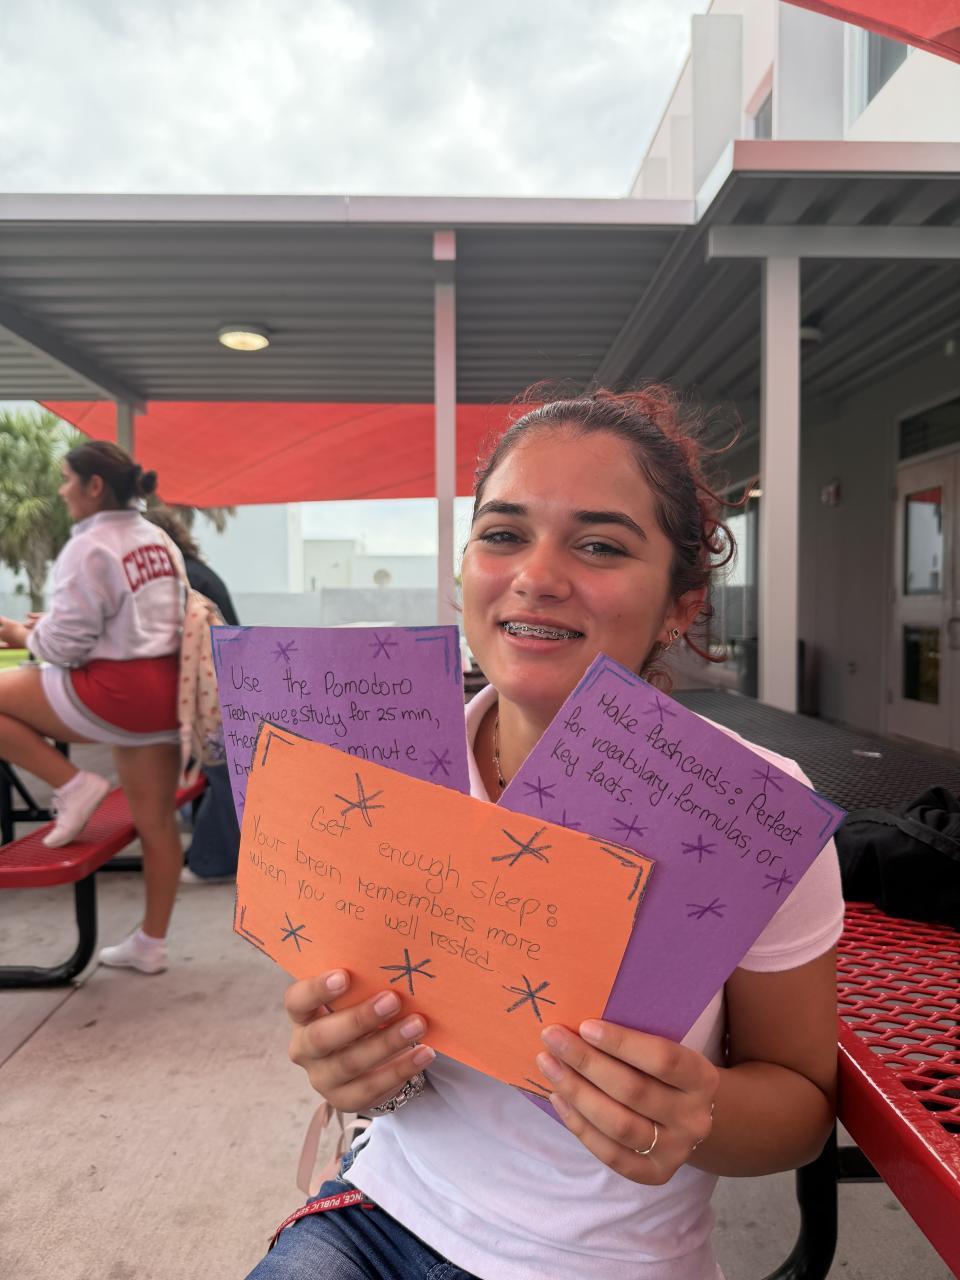 CHEE
Use the Pomodoro
Technique: Study for 25 min,
5-minute
Make flashcards: Perfect
for vocabulary, formulas, or
key facts.
Get enough sleep:
Your brein remembers more
when you are well rested.
NCE, PUBLIC SER